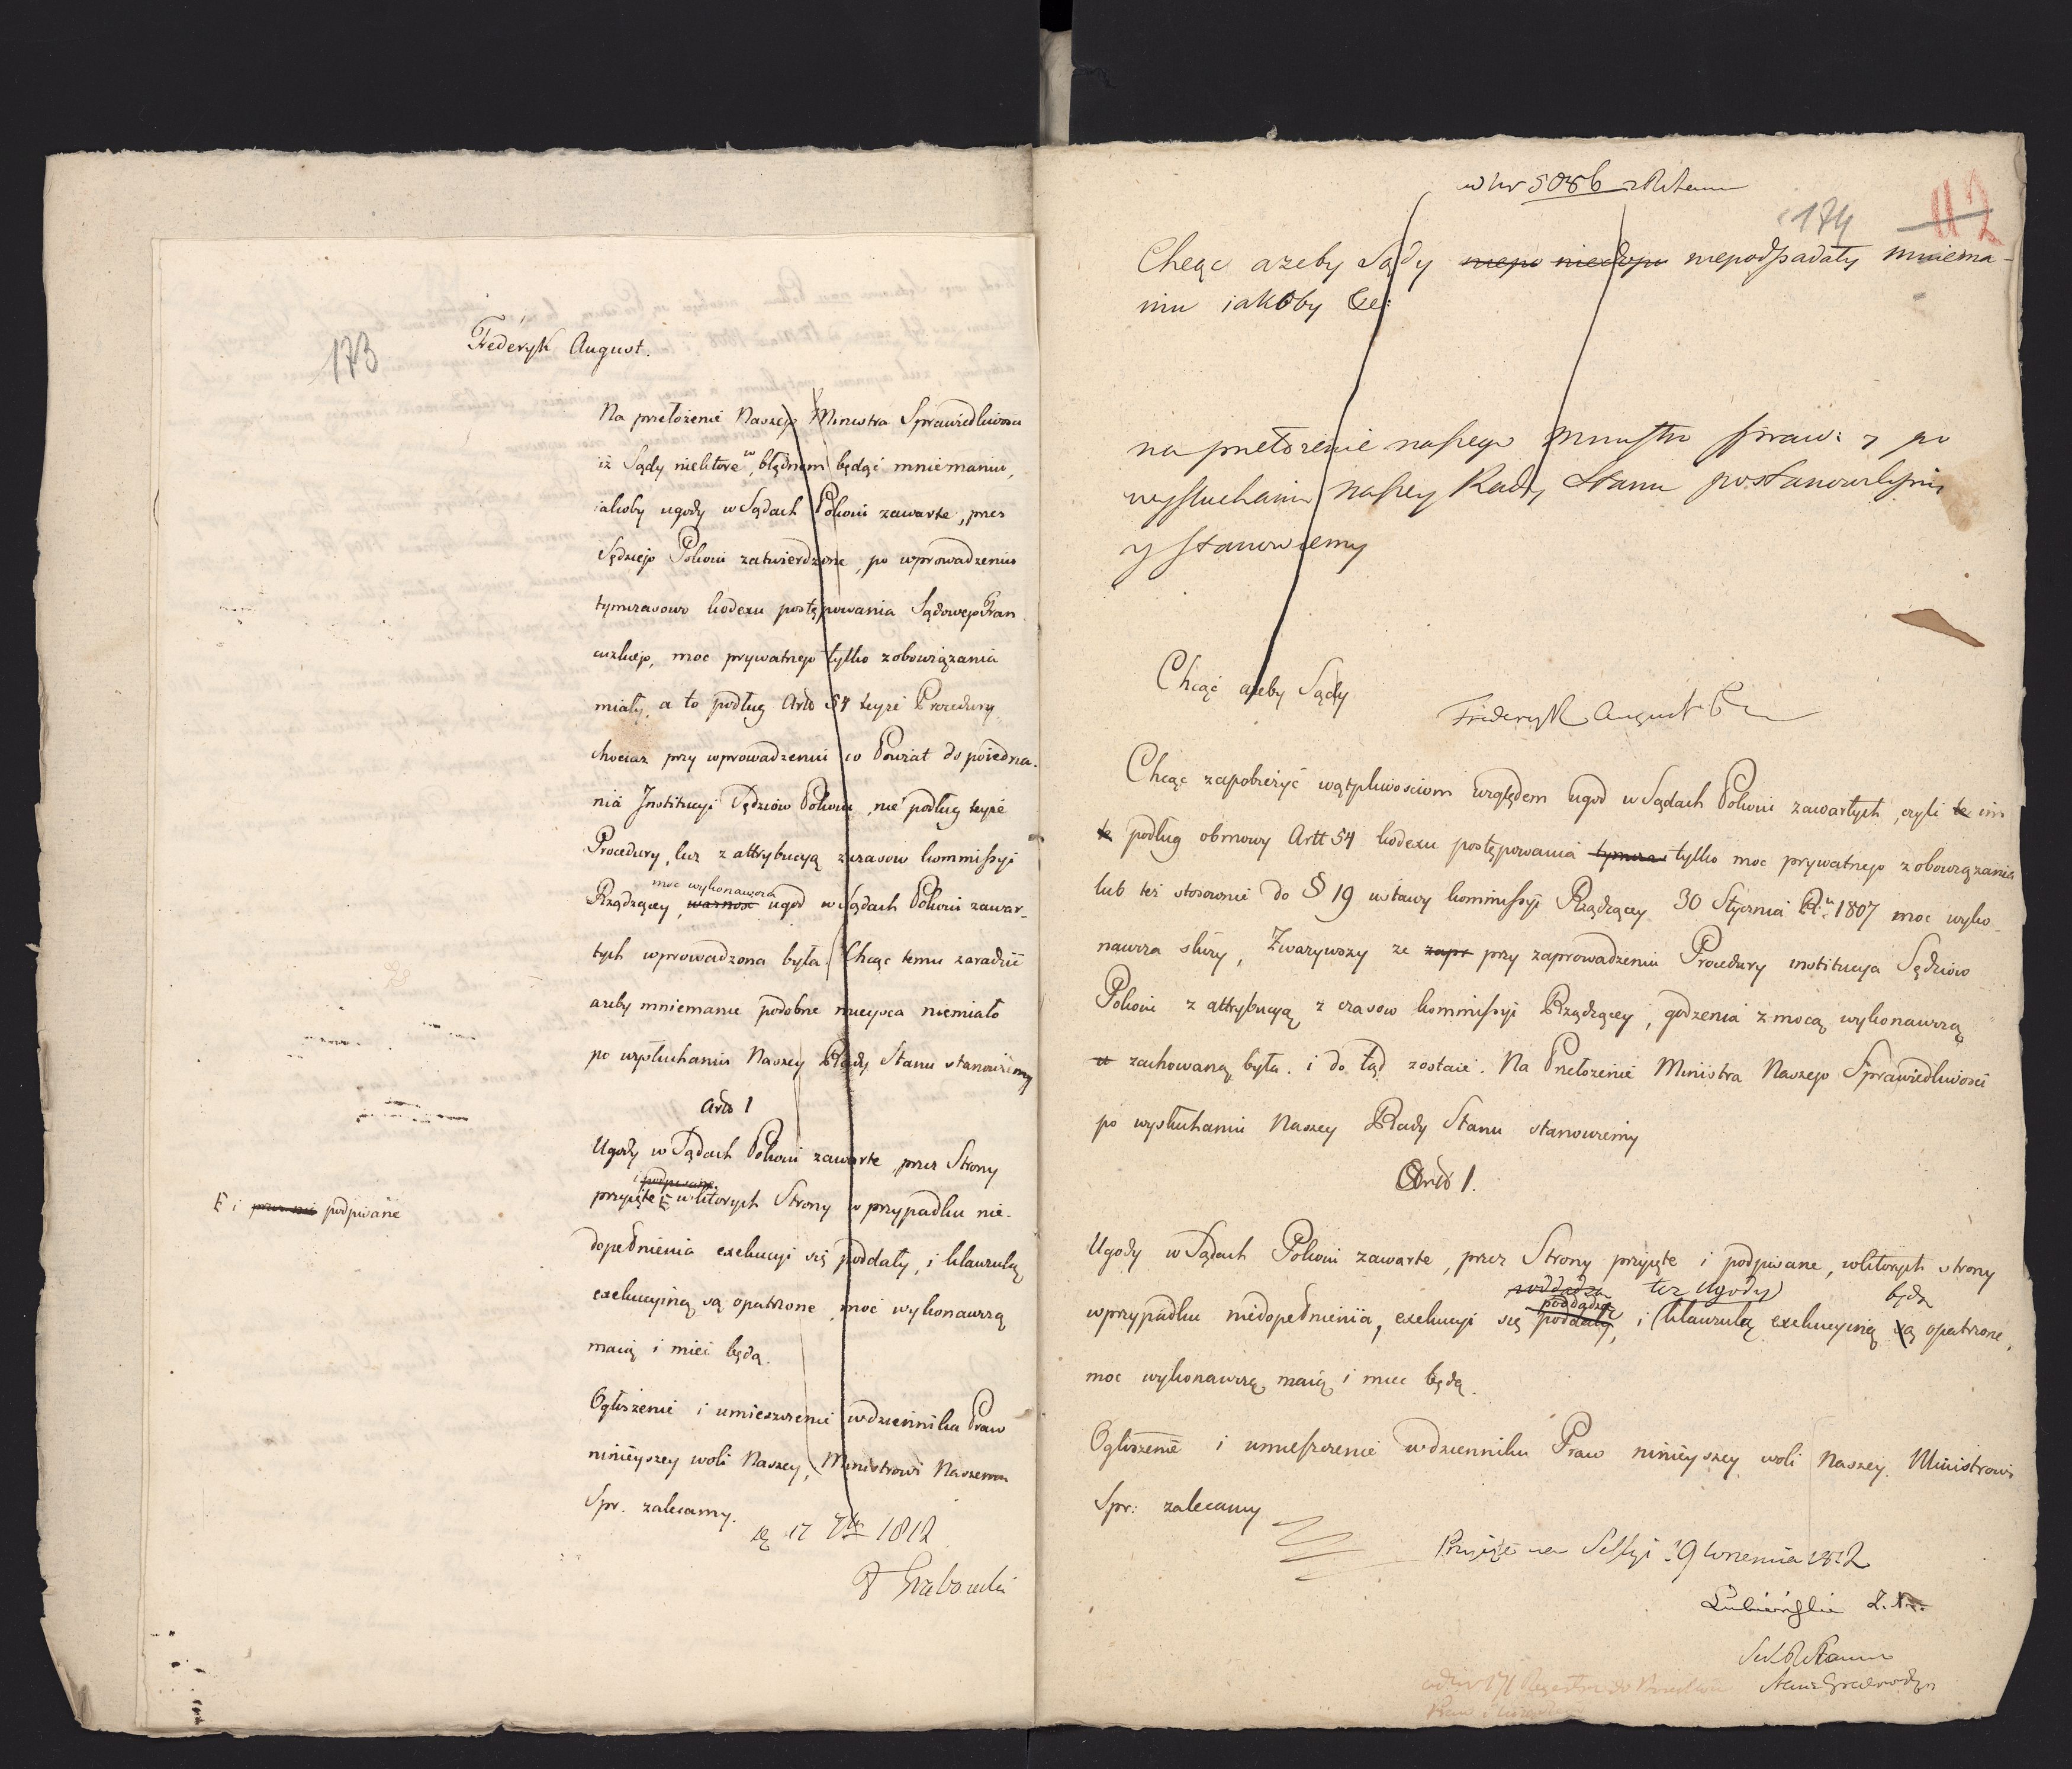 173
Frederyk August.
Na przełożenie Naszego Ministra Sprawiedliwości
iż Sądy niektóre w błędnem będąc mniemaniu,
iakoby ugody w Sądach Pokoiu zawarte, przez
Sędziego Pokoiu zatwierdzone, po wprowadzeniu
tymczasowo kodexu postępowania Sądowego Fran
cuzkiego, moc prywatnego tylko zobowiązania
miały, a to podług Artł 54 teyże Procedury
chociaz przy wprowadzeniu w Powiat do poiedna-
nia Institucyi Sędziów Pokoiu, nie podług teyże
Procedury, lecz z attrybucyą z czasow kommissyi
Rządzącey, moc wykonawcza ważnosc ugod w Sądach Pokoiu zawar-
tych wprowadzona była. Chcąc temu zaradzić
azeby mniemanie podobne mieysca niemiało
po wysłuchaniu Naszey Rady Stanu stanowiemy
Artł 1
Ugody w Sądach Pokoiu zawarte, przez Strony
i podpisane
przyięte E w których Strony w przypadku nie-
E i podpisane
dopełnienia exekucyi się poddały, i klauzulą
exekucyiną są opatrzone, moc wykonawczą
maią i mieć będą.
Ogłoszenie i umieszczenie w dzienniku Praw
ninieyszey woli Naszey, Ministrowi Naszemu
Spr. zalecamy.
17 7br 1812
Grabowski
w nr 5086 z R Stanu
174
112
Chcąc azeby Sądy niepo niepodpadały mniema-
niu iakoby &c:
na przełożenie naszego Ministra spraw: y po
wysłuchaniu naszey Rady Stanu postanowiliśmy
y stanowiemy
Chcąc azeby Sądy
Frideryk August &
Chcąc zapobieżyć wątpliwosciom względem ugod w Sądach Pokoiu zawartych, czyli te im
te podług obmowy Artt 54 kodexu postępowania tymcza tylko moc prywatnego zobowiązania
lub też stosownie do § 19 ustawy kommissyi Rządzącey 30 Stycznia R: 1807 moc wyko-
nawcza służy, Zwazywszy ze zapr przy zaprowadzeniu Procedury institucya Sędziow
Pokoiu z attrybucyą z czasow kommissyi Rządzącey, godzenia z mocą wykonawczą
u zachowaną była. i do tąd zostaie. Na Przełożenie Ministra Naszego Sprawiedliwości
po wysłuchaniu Naszey Rady Stanu stanowiemy
Artł 1.
Ugody w Sądach Pokoiu zawarte, przez Strony przyięte i podpisane, w których strony
poddadzą też Ugody będą
poddadzą
w przypadku niedopełnienia, exekucyi się poddały, i klauzulą exekucyiną są opatrzone,
moc wykonawczą maią i miec będą.
Ogłoszenie i umieszczenie w dzienniku Praw ninieyszey woli Naszey Ministrowi
Spr: zalecamy
Przyięte na Sessyi 19 Wrzesnia 1812
Lubieński
Sek R Stanu